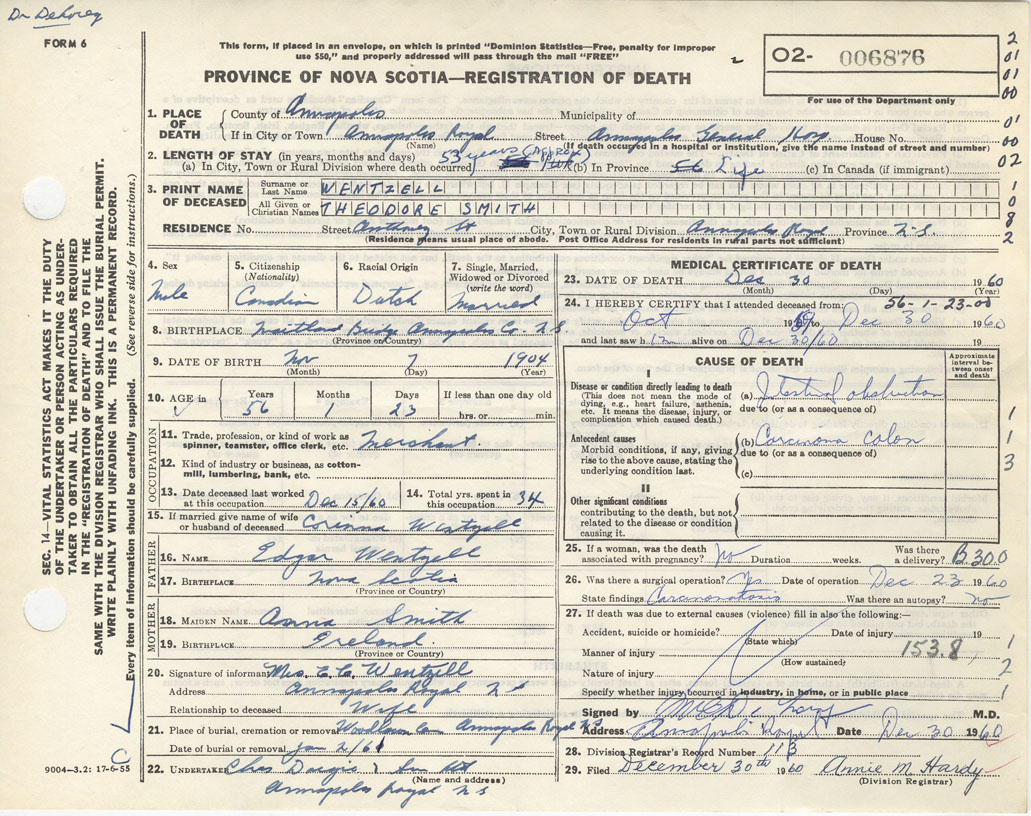 Dr Dehorey
FORM 6
This form, if placed in an envelope, on which is printed "Dominion Statistics—Free, penalty for improper
use $50," and properly addressed will pass through the mail "FREE"
PROVINCE OF NOVA SCOTIA—REGISTRATION OF DEATH
O2- 006876
For use of the Department only
2
01
01
00
SEC. 14—VITAL STATISTICS ACT MAKES IT THE DUTY
OF THE UNDERTAKER OR PERSON ACTING AS UNDER-
TAKER TO OBTAIN ALL THE PARTICULARS REQUIRED
IN THE "REGISTRATION OF DEATH" AND TO FILE THE
SAME WITH THE DIVISION REGISTRAR WHO SHALL ISSUE THE BURIAL PERMIT.
WRITE PLAINLY WITH UNFADING INK. THIS IS A PERMANENT RECORD.
Every item of information should be carefully supplied. (See reverse side for instructions.)
1. PLACE OF DEATH County of Annapolis Municipality of
If in City or Town Annapolis Royal Street Annapolis General Hosp House No.
(Name) (If death occurred in a hospital or institution, give the name instead of street and number)
2. LENGTH OF STAY (in years, months and days) 53 years (Approx)
(a) In City, Town or Rural Division where death occurred (b) In Province 56 Life (c) In Canada (if immigrant)
3. PRINT NAME OF DECEASED Surname or Last Name WENTZELL
All Given or Christian Names THEODORE SMITH
RESIDENCE No. Street Anthony St City, Town or Rural Division Annapolis Royal Province N.S.
(Residence means usual place of abode. Post Office Address for residents in rural parts not sufficient)
4. Sex Male
5. Citizenship (Nationality) Canadian
6. Racial Origin Dutch
7. Single, Married, Widowed or Divorced (write the word) Married
8. BIRTHPLACE Maitland Bridge Annapolis Co. N.S.
(Province or Country)
9. DATE OF BIRTH Nov 7 1904
(Month) (Day) (Year)
10. AGE in Years 56 Months 1 Days 23 If less than one day old hrs. or min.
OCCUPATION
11. Trade, profession, or kind of work as spinner, teamster, office clerk, etc. Merchant.
12. Kind of industry or business, as cotton-mill, lumbering, bank, etc.
13. Date deceased last worked at this occupation Dec 15/60 14. Total yrs. spent in this occupation 34
15. If married give name of wife or husband of deceased Corinna Wentzell
FATHER
16. NAME Edgar Wentzell
17. BIRTHPLACE Nova Scotia
(Province or Country)
MOTHER
18. MAIDEN NAME Anna Smith
19. BIRTHPLACE Ireland
(Province or Country)
20. Signature of informant Mrs. E.C. Wentzell
Address Annapolis Royal N S
Relationship to deceased Wife
21. Place of burial, cremation or removal Woodlawn Cem Annapolis Royal N S
Date of burial or removal Jan 2/61
22. UNDERTAKER Chas Dargie & Son
(Name and address)
Annapolis Royal N S
9004—3.2: 17-6-55
MEDICAL CERTIFICATE OF DEATH
23. DATE OF DEATH Dec 30 1960
(Month) (Day) (Year)
24. I HEREBY CERTIFY that I attended deceased from: 56-1-23-00
Oct 19 to Dec 30 1960
and last saw him alive on Dec 30/60 19
CAUSE OF DEATH
Approximate interval between onset and death
I
Disease or condition directly leading to death (a) Intestinal obstruction
(This does not mean the mode of dying, e.g., heart failure, asthenia, etc. It means the disease, injury, or complication which caused death.)
due to (or as a consequence of)
Antecedent causes (b) Carcinoma Colon
Morbid conditions, if any, giving rise to the above cause, stating the underlying condition last.
due to (or as a consequence of)
(c)
II
Other significant conditions
contributing to the death, but not related to the disease or condition causing it.
25. If a woman, was the death associated with pregnancy? No Duration weeks. Was there a delivery? B300
26. Was there a surgical operation? Yes Date of operation Dec 23 1960
State findings Carcinomatosis Was there an autopsy? no
27. If death was due to external causes (violence) fill in also the following:—
Accident, suicide or homicide? Date of injury 19
(State which)
Manner of injury 153.8
(How sustained)
Nature of injury
Specify whether injury occurred in industry, in home, or in public place
Signed by M.D.
Address Annapolis Royal Date Dec 30 1960
28. Division Registrar's Record Number 113
29. Filed December 30th 1960 Annie M. Hardy
(Division Registrar)